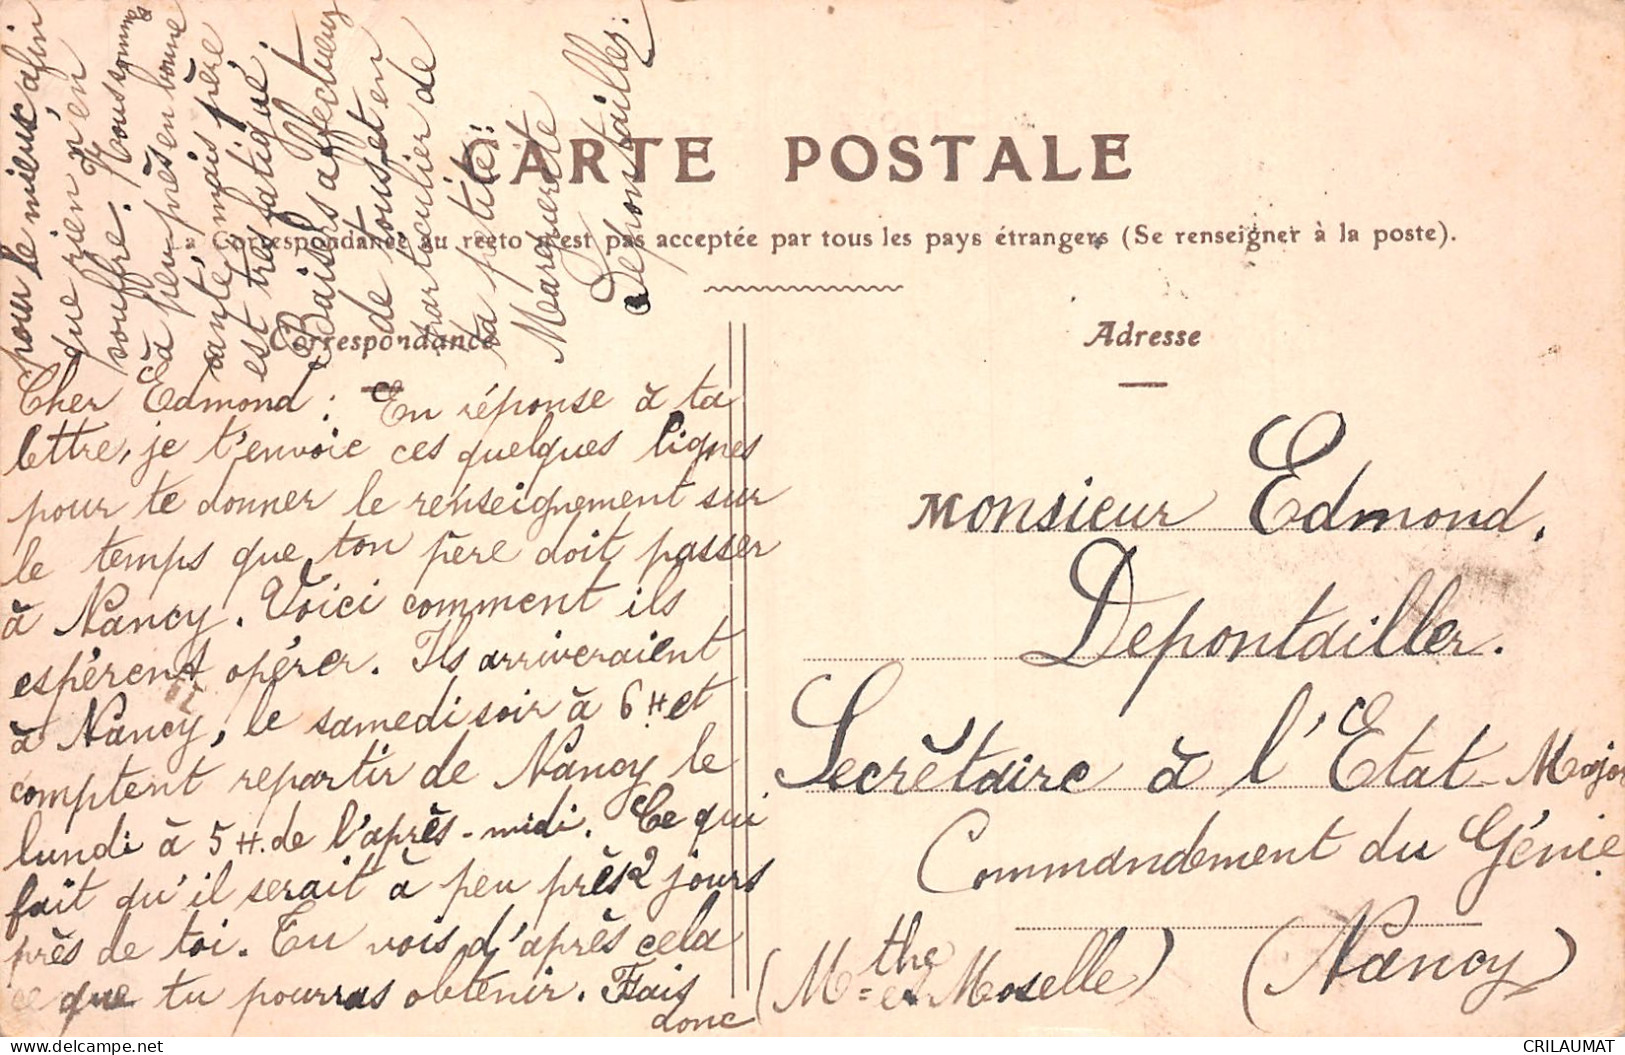 CARTE POSTALE
Correspondance au recto n'est pas acceptée par tous les pays étrangers (Se renseigner à la poste).
Correspondance
Cher Edmond : En réponse à ta
lettre, je t'envoie ces quelques lignes
pour te donner le renseignement sur
le temps que ton père doit passer
à Nancy. Voici comment ils
espèrent opérer. Ils arriveraient
à Nancy, le samedi soir à 6 H et
comptent repartir de Nancy le
lundi à 5 H. de l'après-midi. Ce qui
fait qu'il serait à peu près 2 jours
près de toi. Tu vois d'après cela
ce que tu pourras obtenir. Fais
donc
pour le mieux afin
que rien n'en
souffre. Nous sommes
à peu près en bonne
santé mais père
est très fatigué.
Baisers affectueux
de tous et en
particulier de
ta petite
Marguerite
Depontailler.
Adresse
Monsieur Edmond.
Depontailler.
Secrétaire à l'Etat-Major
Commandement du Génie.
(Nancy)
(Mthe et Moselle)
CRILAUMAT